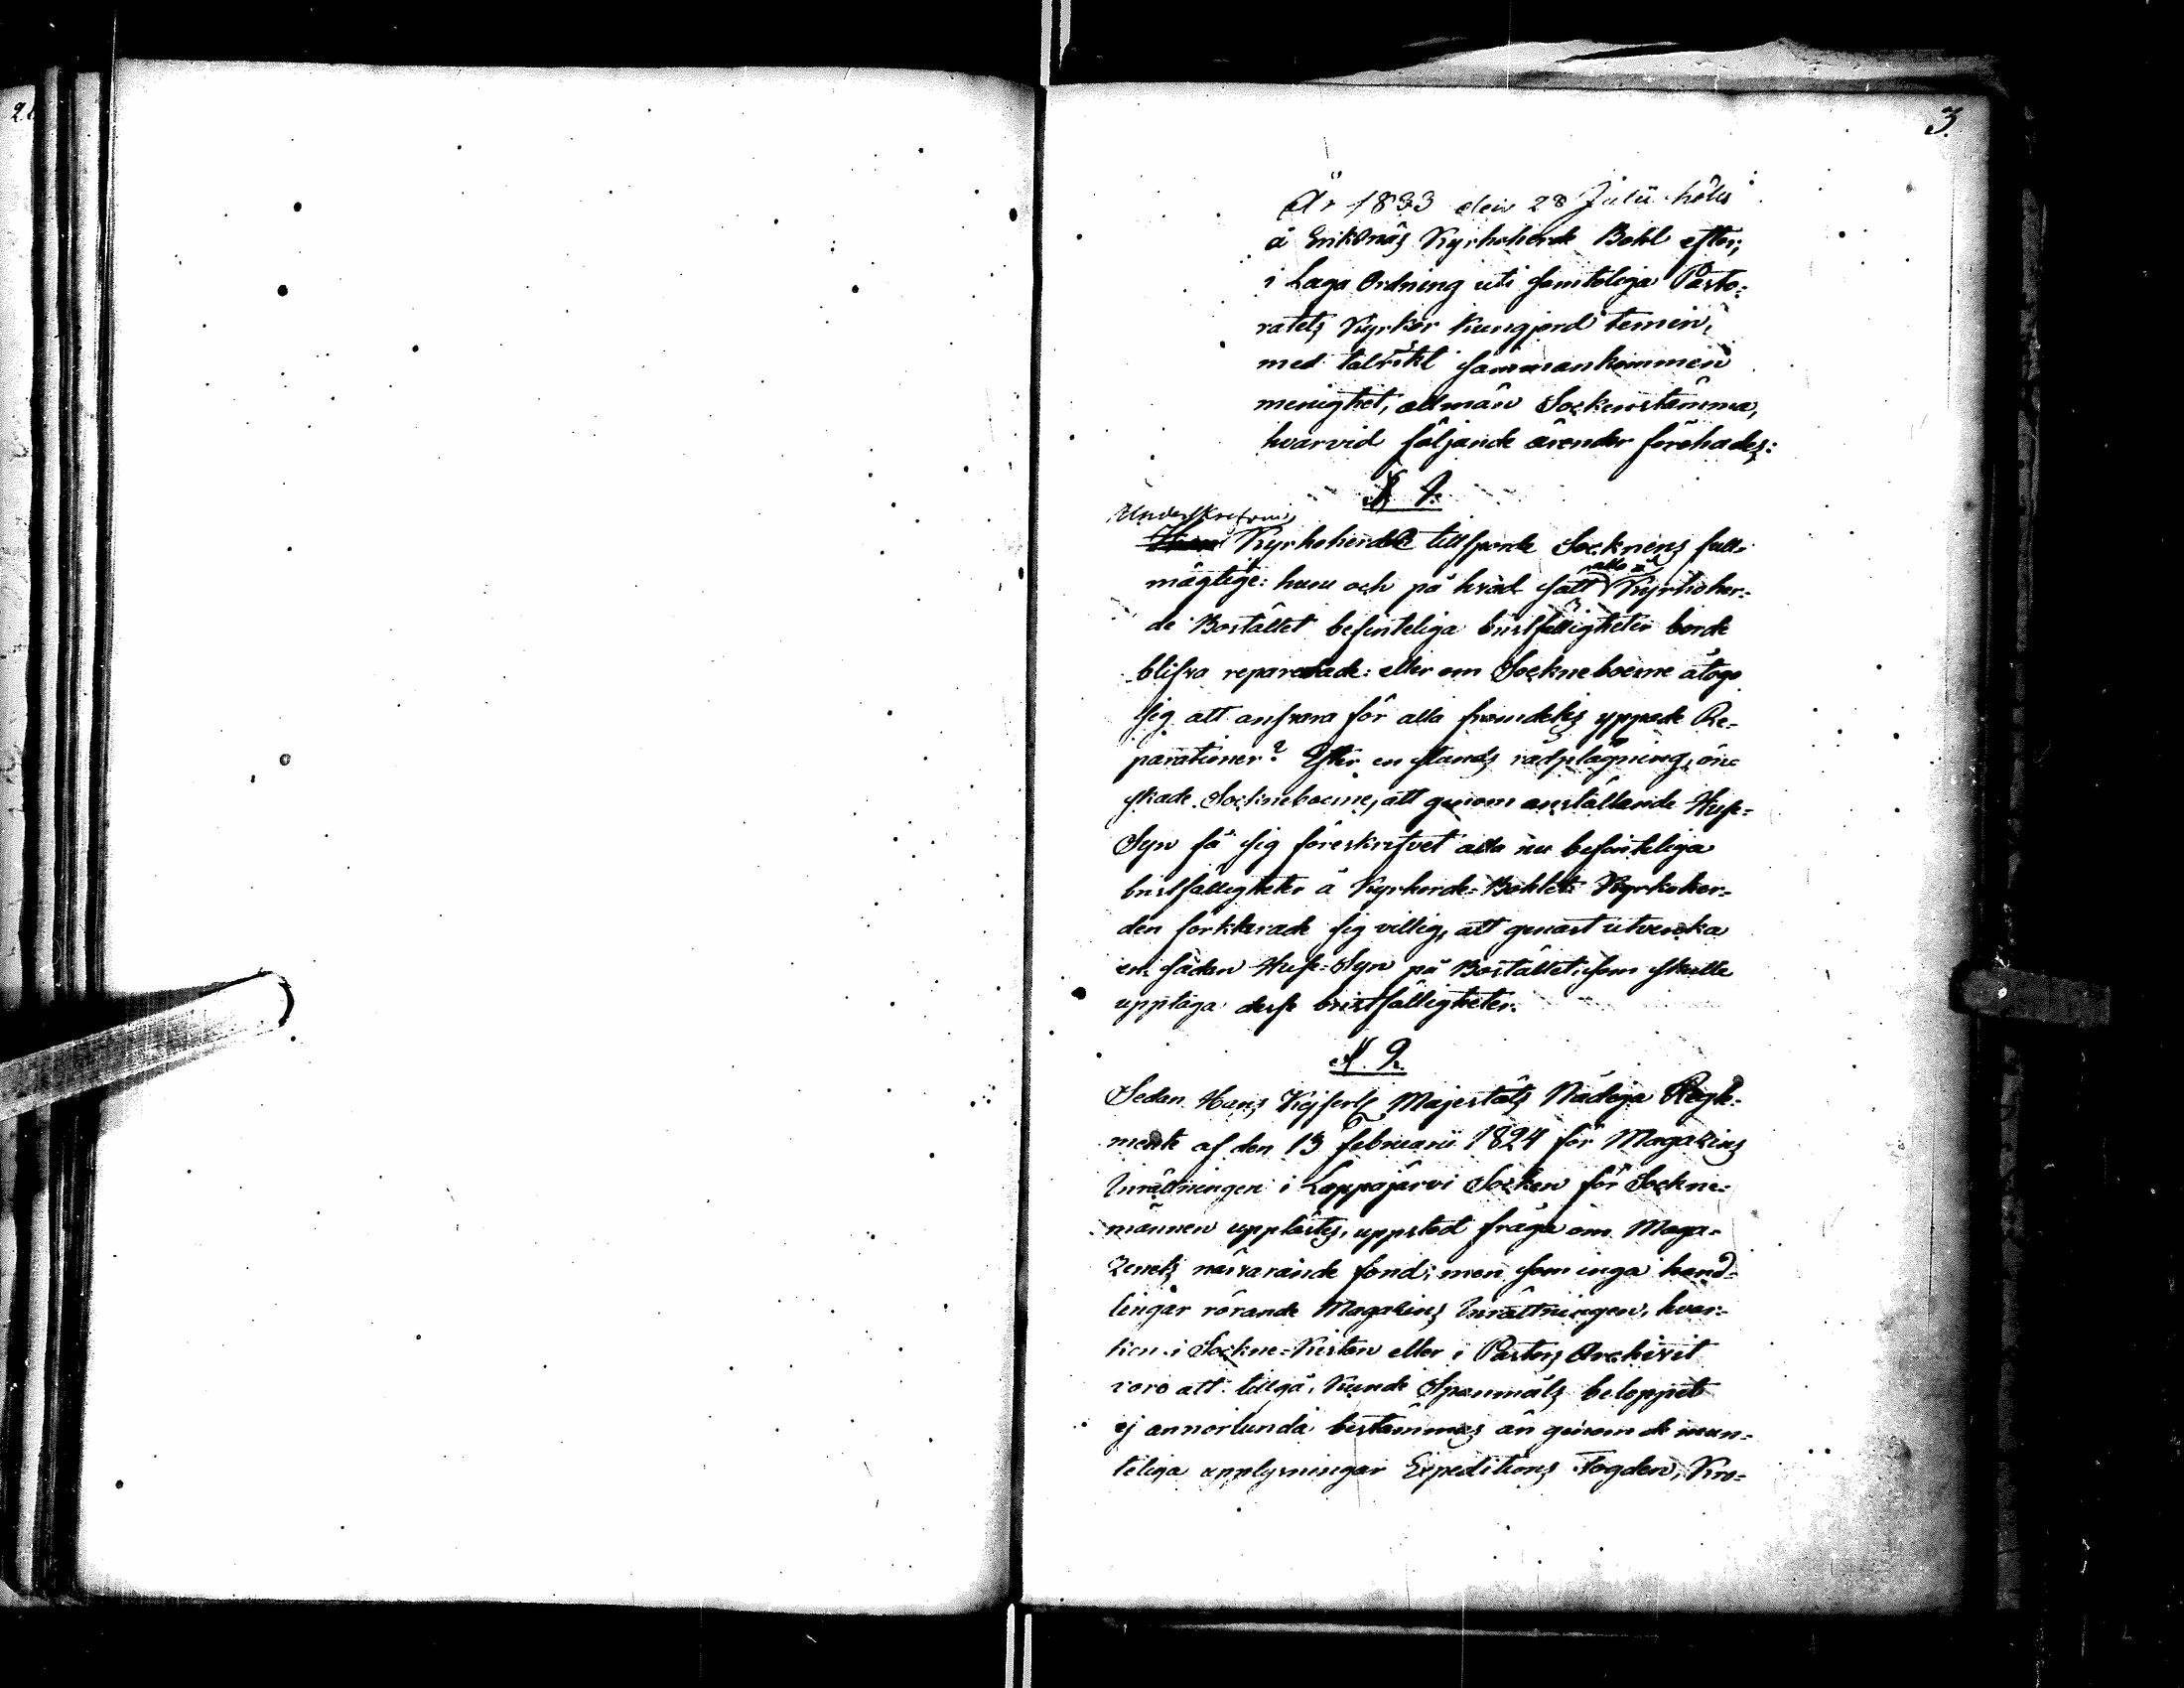 3.
År 1833 den 28 Julii hölts
å Eriksnäs Kyrkoherde Bohl efter,
i Laga Ordning uti samteliga Pasto-
ratets Kyrkor kungjord termin,
med talrikt sammankommen
menighet, allmän Sockenstämma,
hvarvid följande ärender förehades:
§ 1.
Underskrefven
Kyrkoherde tillsporde Socknens full-
mägtige: huru och på hvad sätt alla å Kyrkoher-
de Bostället befinteliga bristfälligheter borde
blifva reparerade: eller om Sockneboerne åtogo
sig att ansvara för alla framdeles yppade Re-
parationer? Efter en stunds rådplägning, ön-
skade Sockneboerne, att genom anställande Huse-
Syn få sig föreskrifvet alla nu befinteliga
bristfälligheter å Kyrkherde-Bohlet. Kyrkoher-
den förklarade sig villig, att genast utverka
en sådan Huse-Syn på Bostället, som skulle
upptaga dess bristfälligheter.
§ 2.
Sedan Hans Kejserl. Majestäts Nådiga Regle-
mente af den 13 Februarii 1824 för Magazins
Inrättningen i Lappajärvi Socken för Sockne-
männen upplästes, uppstod fråga om Maga-
zinets närvarande fond; men som inga hand-
lingar rörande Magazins Inrättningen, hvar-
ken i Sockne-Kistan eller i Pastors Archivet
voro att tillgå, kunde Spanmåls beloppet
ej annorlunda bestämmas än genom de mun-
teliga upplysningar Expeditions Fogden, Kro-